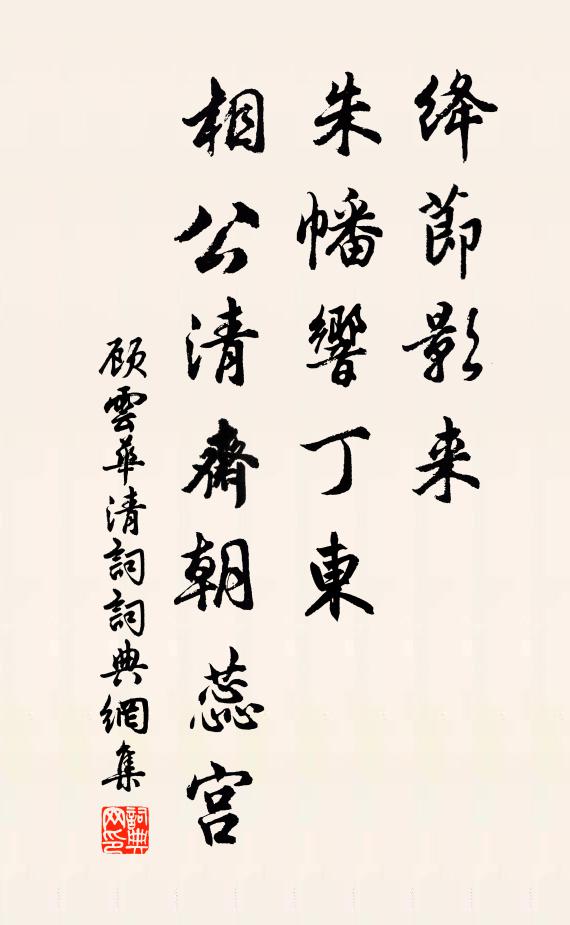 絳節影来
朱幡響丁東
相公清齋朝蕊宫
顧雲華清詞詞典網集
詞典網印